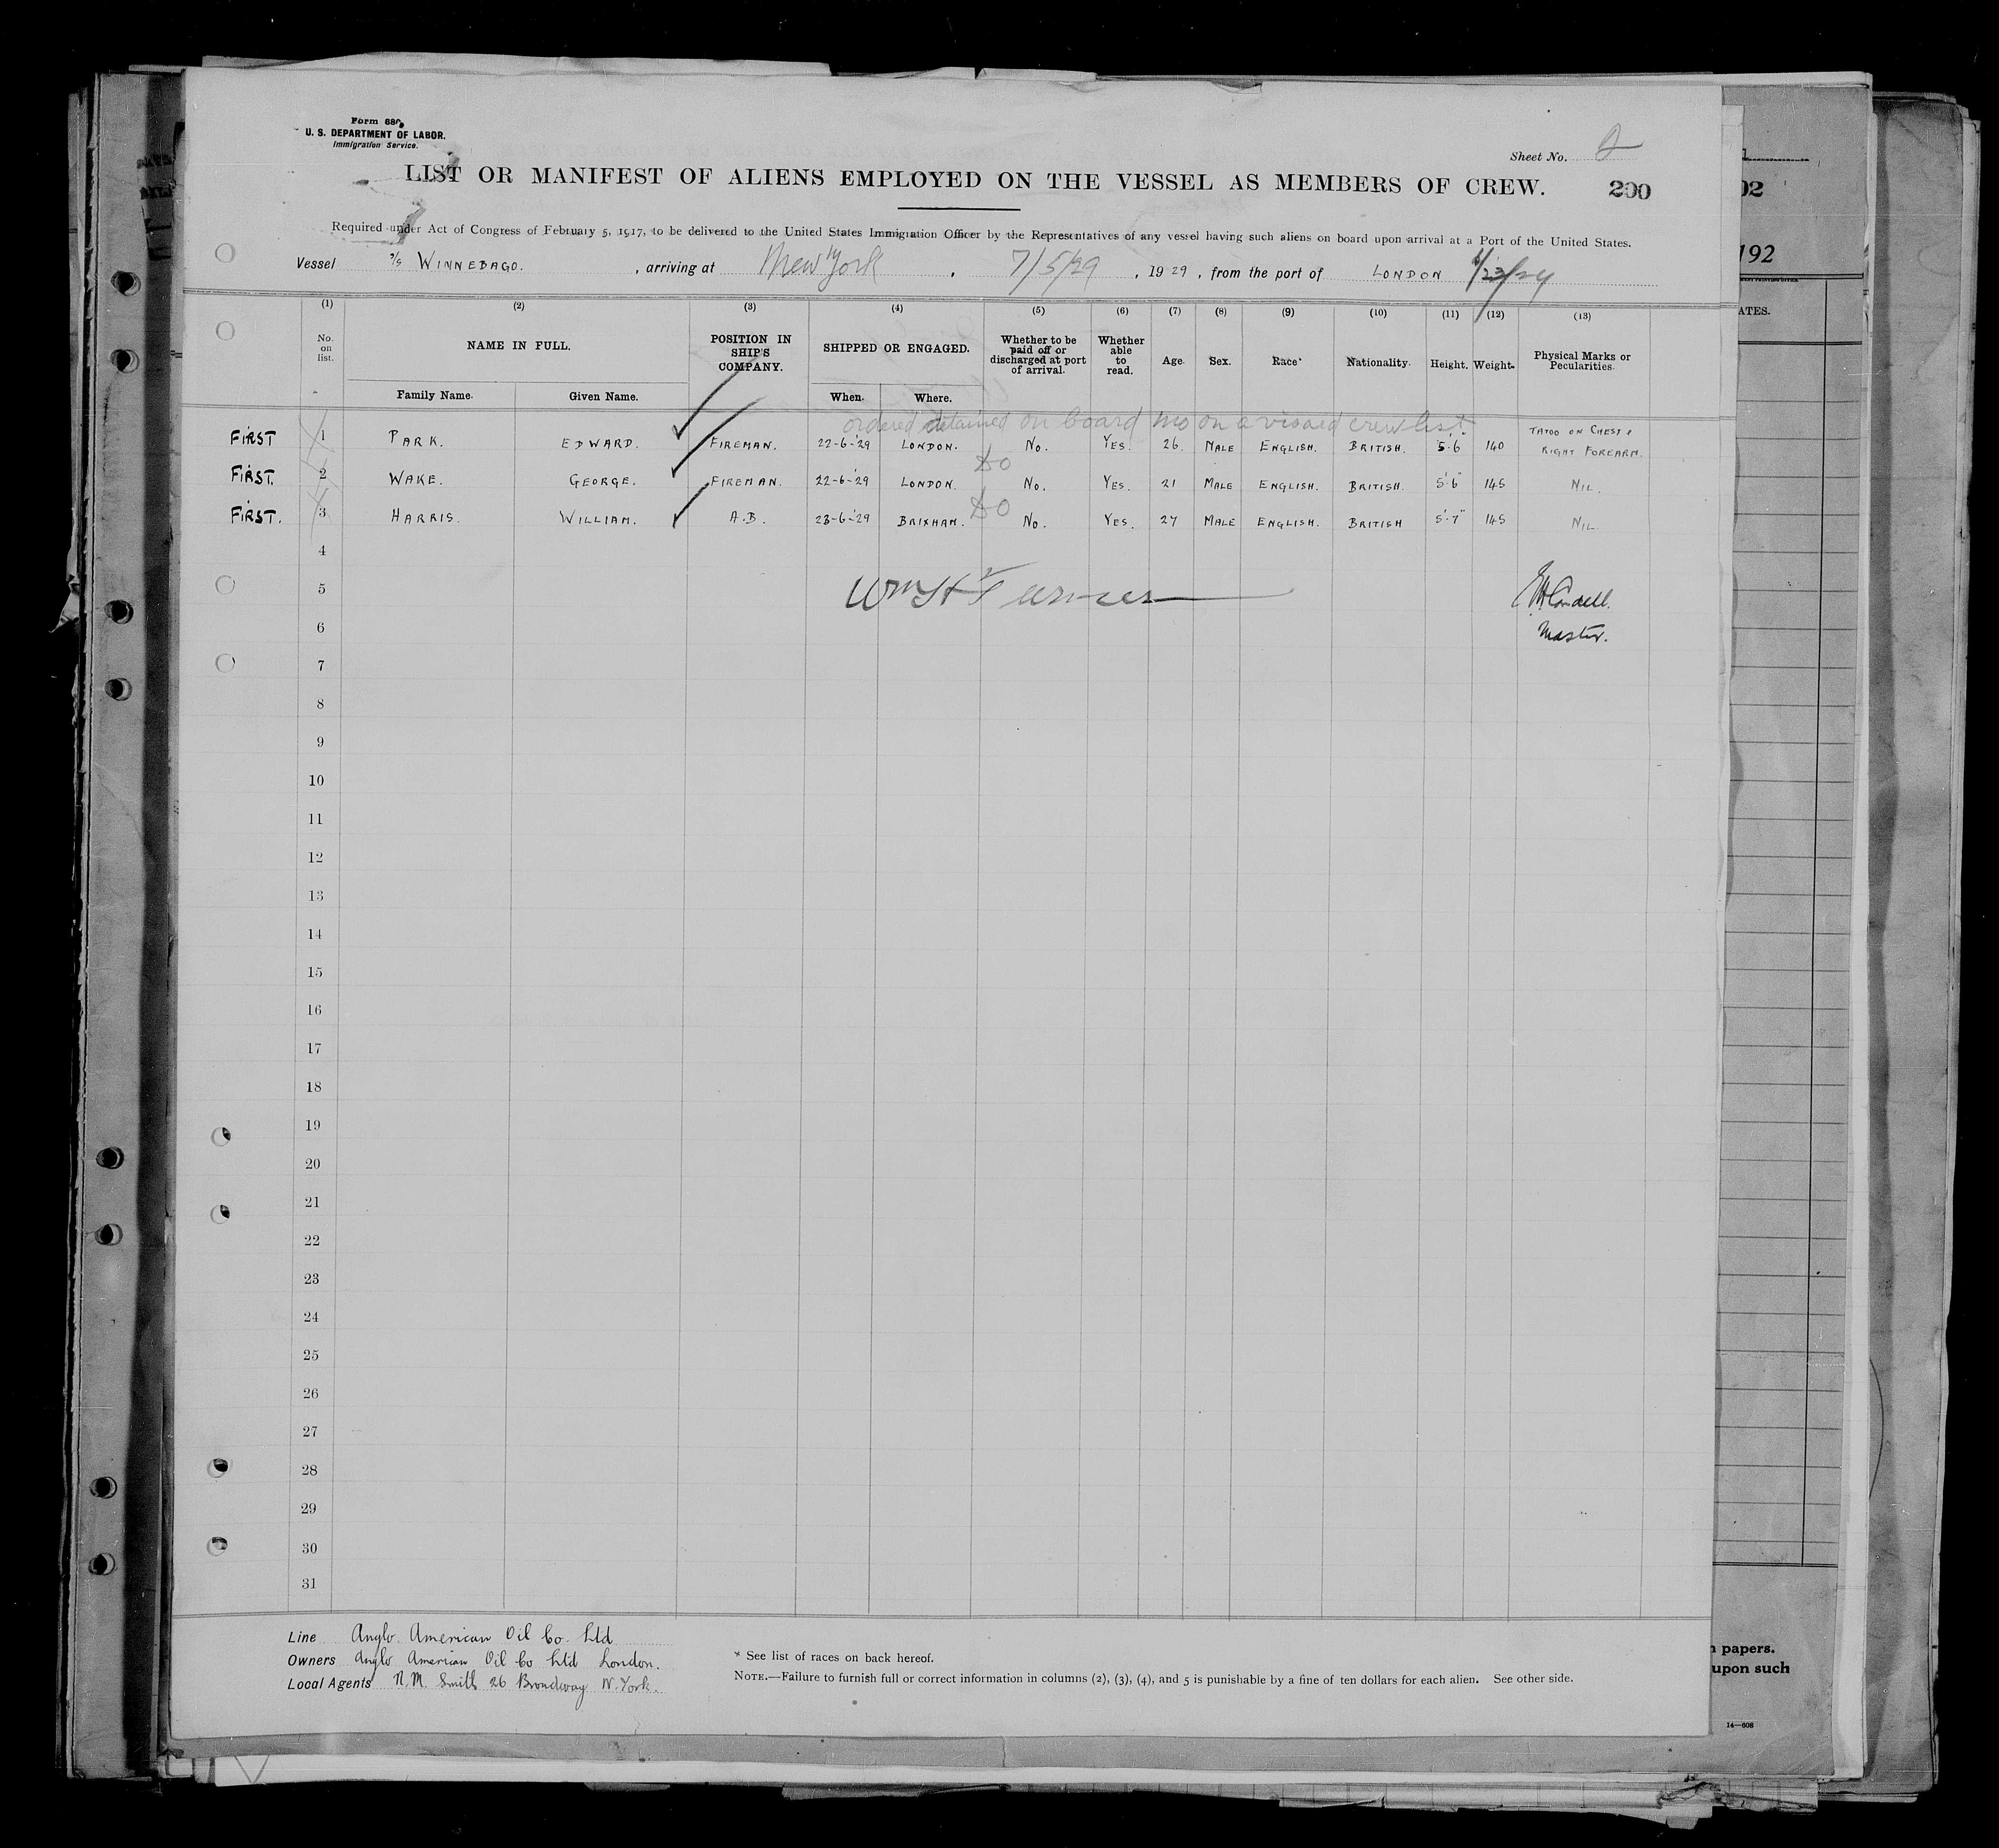 Form 680
U. S. DEPARTMENT OF LABOR.
Immigration Service.
Sheet No. 2
LIST OR MANIFEST OF ALIENS EMPLOYED ON THE VESSEL AS MEMBERS OF CREW.
200
Required under Act of Congress of February 5, 1917, to be delivered to the United States Immigration Officer by the Representatives of any vessel having such aliens on board upon arrival at a Port of the United States.
Vessel S/S WINNEBAGO. , arriving at New York , 7/5/29 , 1929 , from the port of LONDON
(1) (2) (3) (4) (5) (6) (7) (8) (9) (10) (11) (12) (13)
No. on list. NAME IN FULL. POSITION IN SHIP'S COMPANY. SHIPPED OR ENGAGED. Whether to be paid off or discharged at port of arrival. Whether able to read. Age. Sex. Race* Nationality. Height. Weight. Physical Marks or Pecularities.
Family Name. Given Name. When. Where.
ordered detained on board no on a visaed crew list
FIRST 1 PARK. EDWARD. FIREMAN. 22-6-'29 LONDON. No. YES. 26 MALE ENGLISH. BRITISH. 5'-6" 140 TATOO ON CHEST & RIGHT FOREARM.
Do
FIRST. 2 WAKE. GEORGE. FIREMAN. 22-6-'29 LONDON. No. YES. 21 MALE ENGLISH. BRITISH. 5'-6" 145 NIL.
Do
FIRST. 3 HARRIS. WILLIAM. A.B. 23-6-'29 BRIXHAM. No. YES. 27 MALE ENGLISH. BRITISH 5'-7" 145 NIL.
4
5 Wm H Turner
6 Master.
7
8
9
10
11
12
13
14
15
16
17
18
19
20
21
22
23
24
25
26
27
28
29
30
31
Line Anglo American Oil Co. Ltd
Owners Anglo American Oil Co Ltd London.
Local Agents N.M. Smith 26 Broadway N. York.
* See list of races on back hereof.
NOTE.—Failure to furnish full or correct information in columns (2), (3), (4), and 5 is punishable by a fine of ten dollars for each alien. See other side.
02
192
ATES.
papers.
upon such
14—608